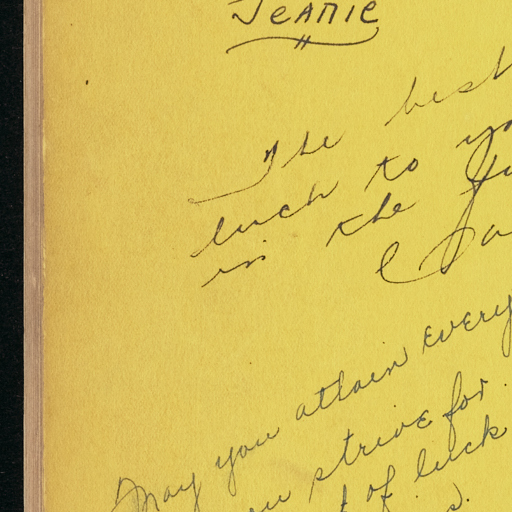 Jeanie
The best
luck to
in the
May you attain every
strive for
of luck